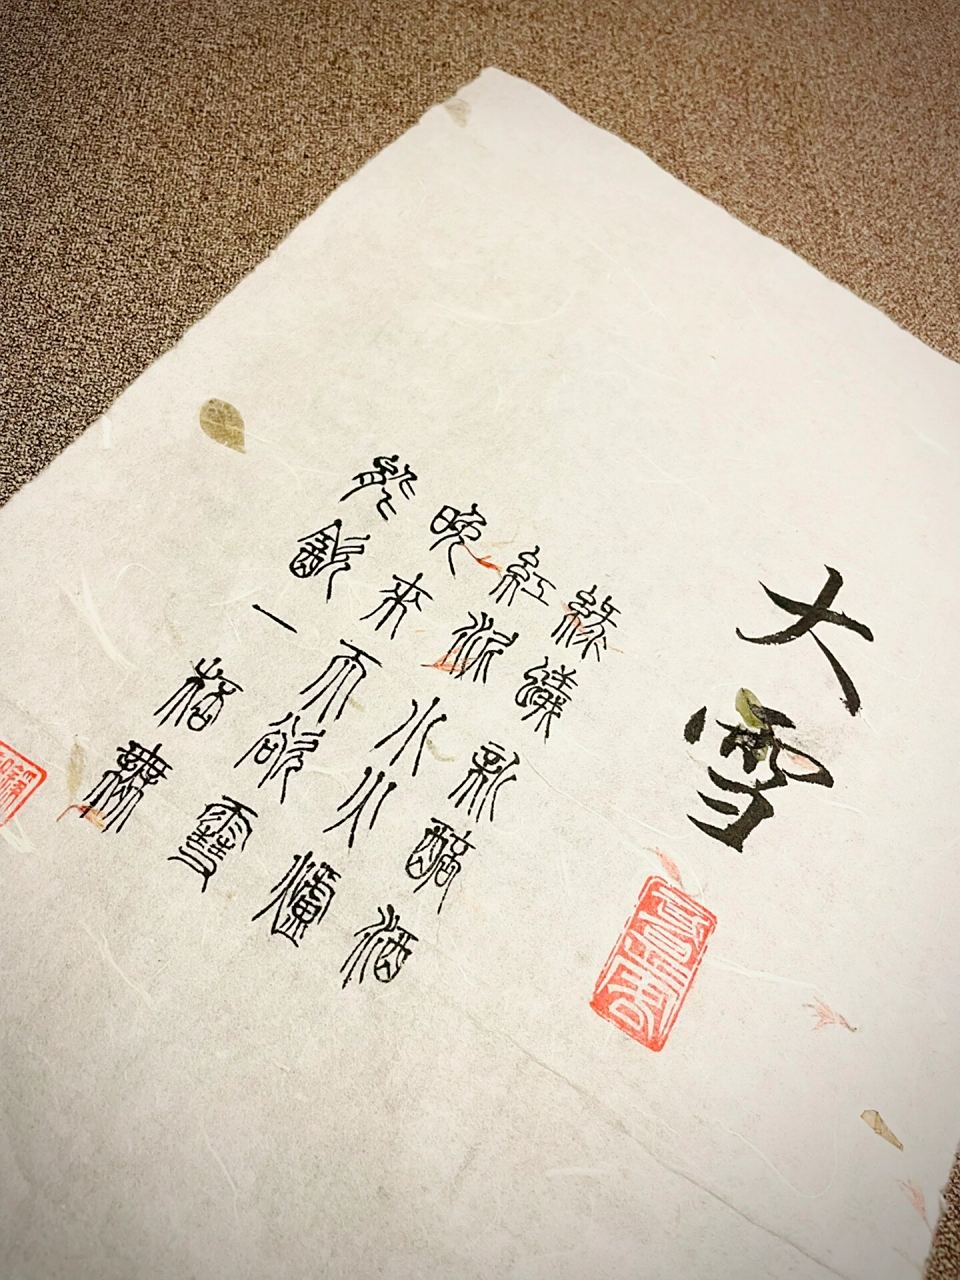 大雪
綠蟻新醅酒
紅泥小火爐
晚來天欲雪
能飲一杯無